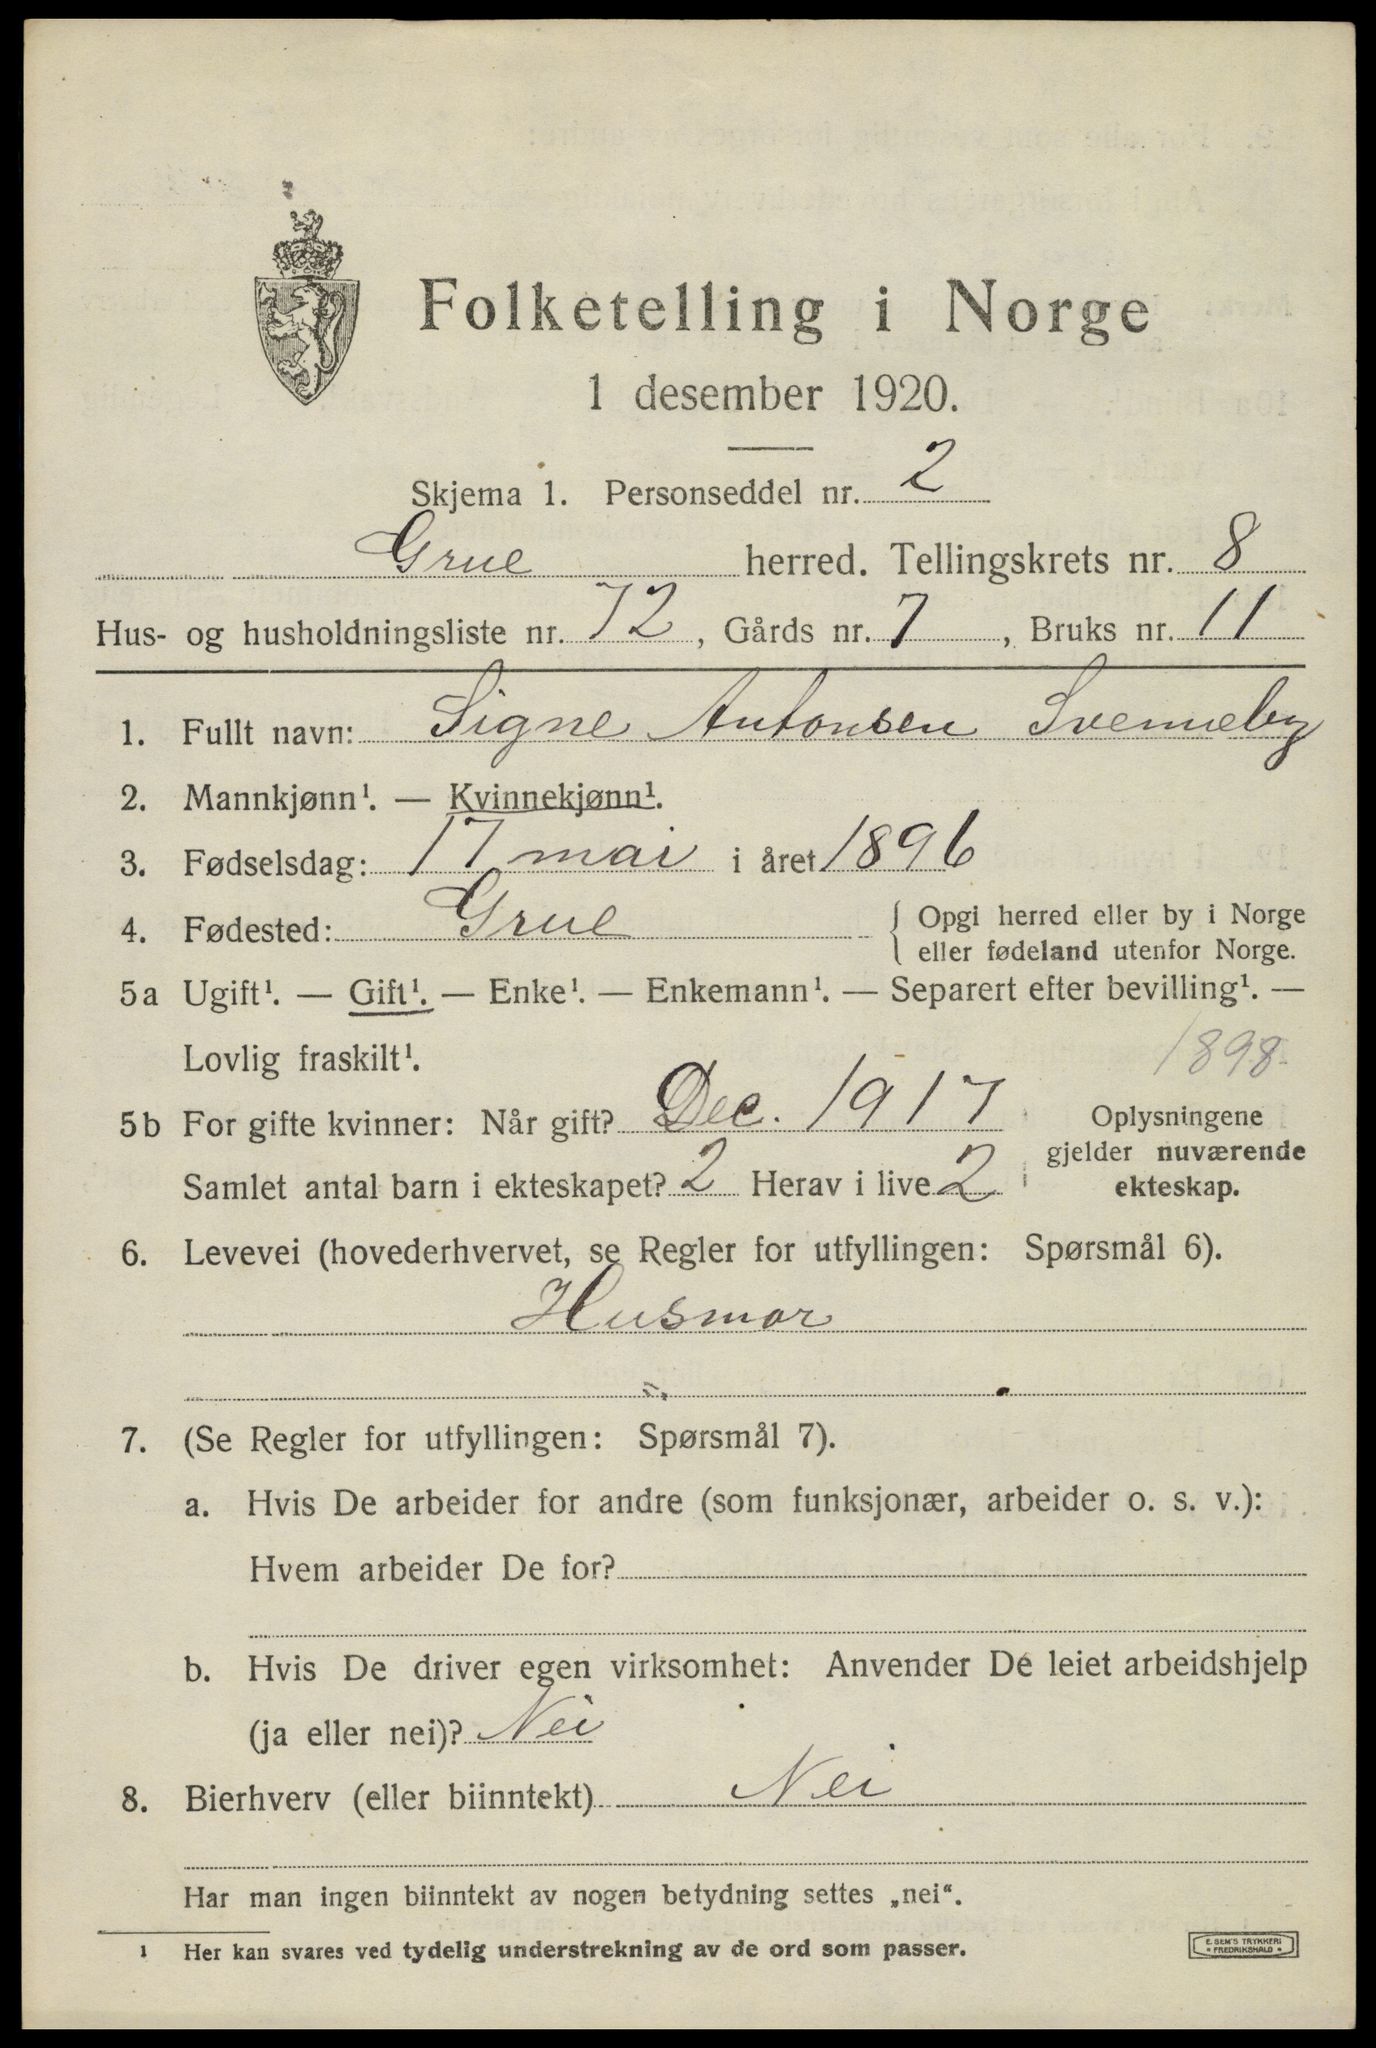 Folketelling i Norge
1 desember 1920.
Skjema 1. Personseddel nr. 2
Grue herred. Tellingskrets nr. 8
Hus- og husholdningsliste nr. 72, Gårds nr. 7, Bruks nr. 11
1. Fullt navn: Signe Antonsen Svenneby
2. Mannkjønn¹. — Kvinnekjønn¹.
3. Fødselsdag: 17 mai i året 1896
4. Fødested: Grue { Opgi herred eller by i Norge
eller fødeland utenfor Norge.
5a Ugift¹. — Gift¹. — Enke¹. — Enkemann¹. — Separert efter bevilling¹. —
Lovlig fraskilt¹. 1898
5b For gifte kvinner: Når gift? Dec. 1917 Oplysningene
gjelder nuværende
Samlet antal barn i ekteskapet? 2 Herav i live 2 ekteskap.
6. Levevei (hovederhvervet, se Regler for utfyllingen: Spørsmål 6).
Husmor
7. (Se Regler for utfyllingen: Spørsmål 7).
a. Hvis De arbeider for andre (som funksjonær, arbeider o. s. v.):
Hvem arbeider De for?
b. Hvis De driver egen virksomhet: Anvender De leiet arbeidshjelp
(ja eller nei)? Nei
8. Bierhverv (eller biinntekt) Nei
Har man ingen biinntekt av nogen betydning settes „nei“.
¹ Her kan svares ved tydelig understrekning av de ord som passer.
E. SEM'S TRYKKERI
• FREDRIKSHALD •